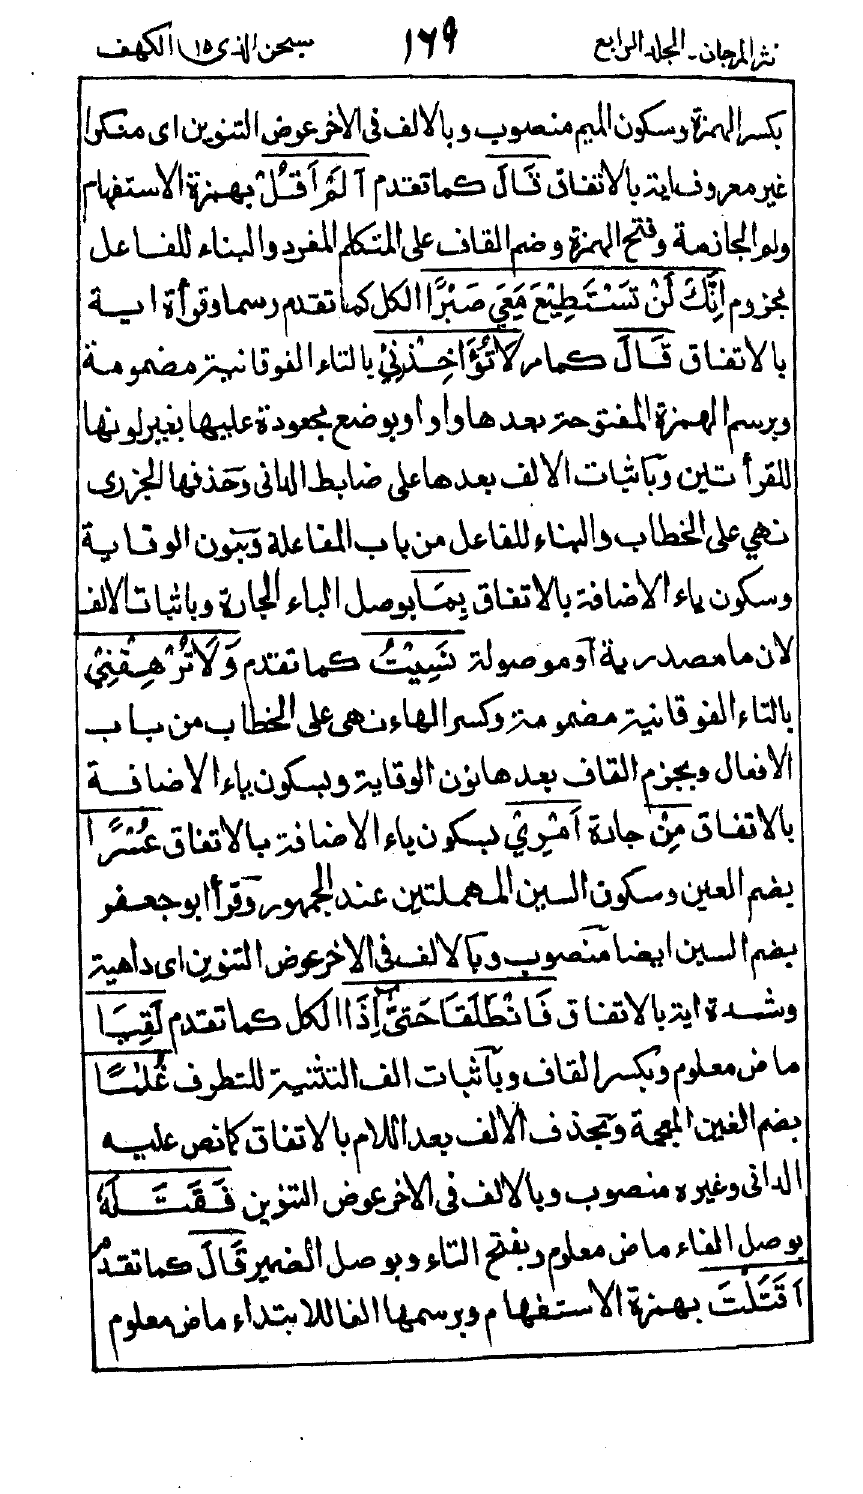 نثر المرجان۔ المجلد الرابع ١٦٩ سبحن الذى ١٥ الكهف
بكسر الهمزة وسكون الميم منصوب وبالالف فى الاخر عوض التنوين اى منكرا
غير معروف اية بالاتفاق قَالَ كما تقدم اَلَمْ اَقُلْ بهمزة الاستفهام
ولم الجازمة وفتح الهمزة وضم القاف على المتكلم المفرد والبناء للفاعل
مجزوم اِنَّكَ لَنْ تَسْتَطِيْعَ مَعِيَ صَبْرًا الكل كما تقدم رسما وقرأة اية
بالاتفاق قَالَ كما مر لَا تُؤَاخِذْنِيْ بالتاء الفوقانية مضمومة
وبرسم الهمزة المفتوحة بعدها واوا وبوضع مجعودة عليها بغير لونها
للقرأتين وباثبات الالف بعدها على ضابط الدانى وحذفها الجزرى
نهي على الخطاب والبناء للفاعل من باب المفاعلة وبنون الوقاية
وسكون ياء الاضافة بالاتفاق بِمَا بوصل الباء الجارة وباثبات الالف
لان ما مصدرية أو موصولة نَسِيْتُ كما تقدم وَلَا تُرْهِقْنِيْ
بالتاء الفوقانية مضمومة وكسر الهاء نهى على الخطاب من باب
الافعال وبجزم القاف بعدها نون الوقاية وبسكون ياء الاضافة
بالاتفاق مِنْ جادة اَمْرِيْ بسكون ياء الاضافة بالاتفاق عُسْرًا
بضم العين وسكون السين المهملتين عند الجمهور وقرأ ابو جعفر
بضم السين ايضا منصوب وبالالف فى الاخر عوض التنوين اى داهية
وشدة اية بالاتفاق فَانْطَلَقَا حَتىّٰ اِذَا الكل كما تقدم لَقِيَا
ماض معلوم وبكسر القاف وباثبات الف التثنية للتطرف غُلٰمًا
بضم الغين المعجمة وبحذف الالف بعد اللام بالاتفاق كما نص عليه
الدانى وغيره منصوب وبالالف فى الاخر عوض التنوين فَقَتَلَهٗ
بوصل الفاء ماض معلوم وبفتح التاء وبوصل الضمير قَالَ كما تقدم
اَقَتَلْتَ بهمزة الاستفهام وبرسمها الفا للابتداء ماض معلوم